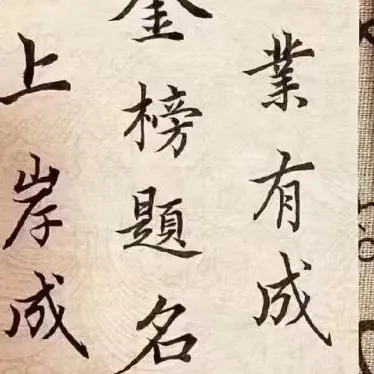 業有成
金榜題名
上岸成